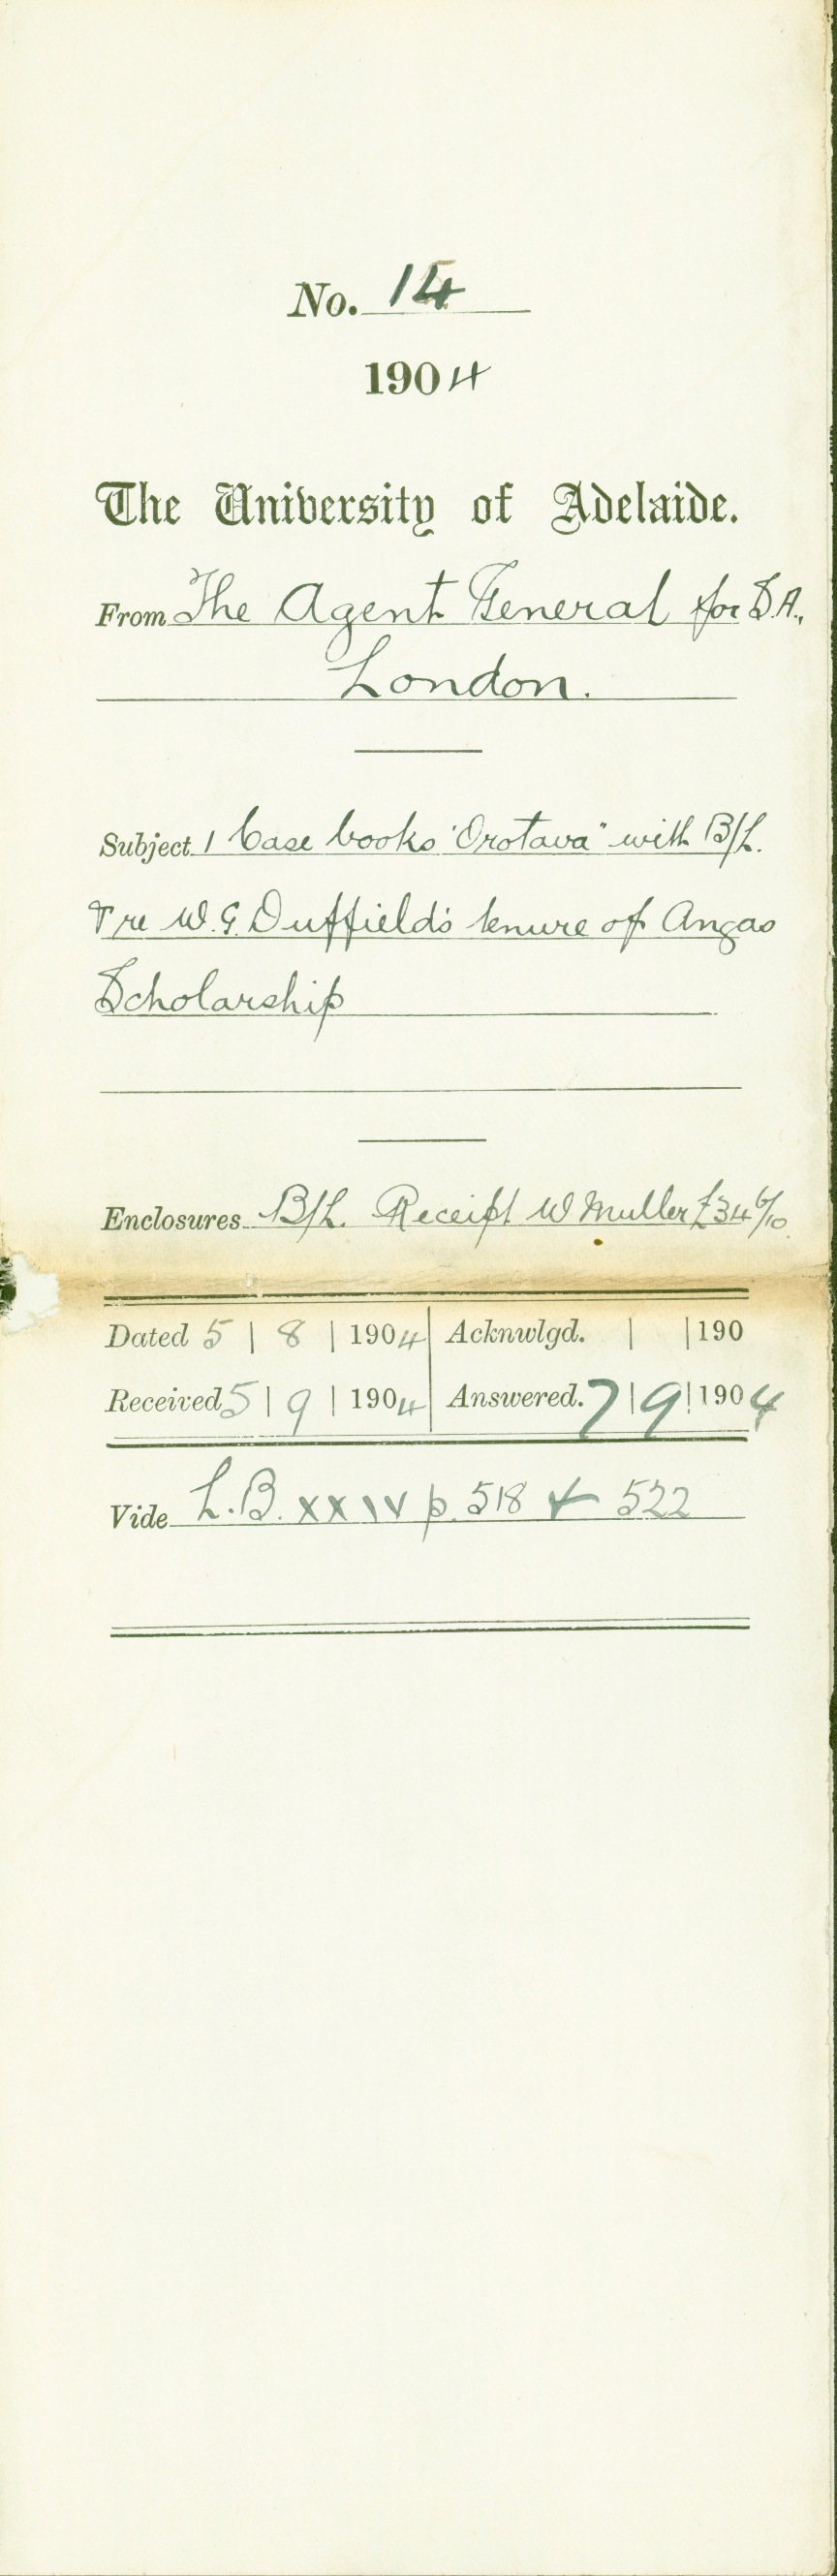 No. 14
1904
The University of Adelaide.
From The Agent General for S.A.,
London.
Subject 1 Case books "Orotava" with B/L.
& re W. G. Duffield's tenure of Angas
Scholarship
Enclosures B/L. Receipt W Muller £34 6/10.
Dated 5 | 8 | 1904 Acknwlgd. | | 190
Received 5 | 9 | 1904 Answered. 7 | 9 | 1904
Vide L.B. xxiv p. 518 & 522